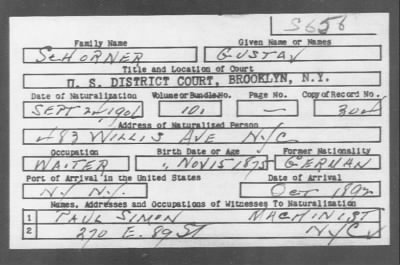 S656
Family Name Given Name or Names
SCHORNER GUSTAV
Title and Location of Court
U. S. DISTRICT COURT, BROOKLYN, N.Y.
Date of Naturalization Volume or Bundle No. Page No. Copy of Record No.
SEPT 1906 101 — 30
Address of Naturalized Person
483 WILLIS AVE NYC
Occupation Birth Date or Age Former Nationality
WAITER NOV 15 1875 GERMAN
Port of Arrival in the United States Date of Arrival
NY N.Y. OCT 1892
Names, Addresses and Occupations of Witnesses To Naturalization
1 PAUL SIMON MACHINIST
2 270 E. 89 ST NYC